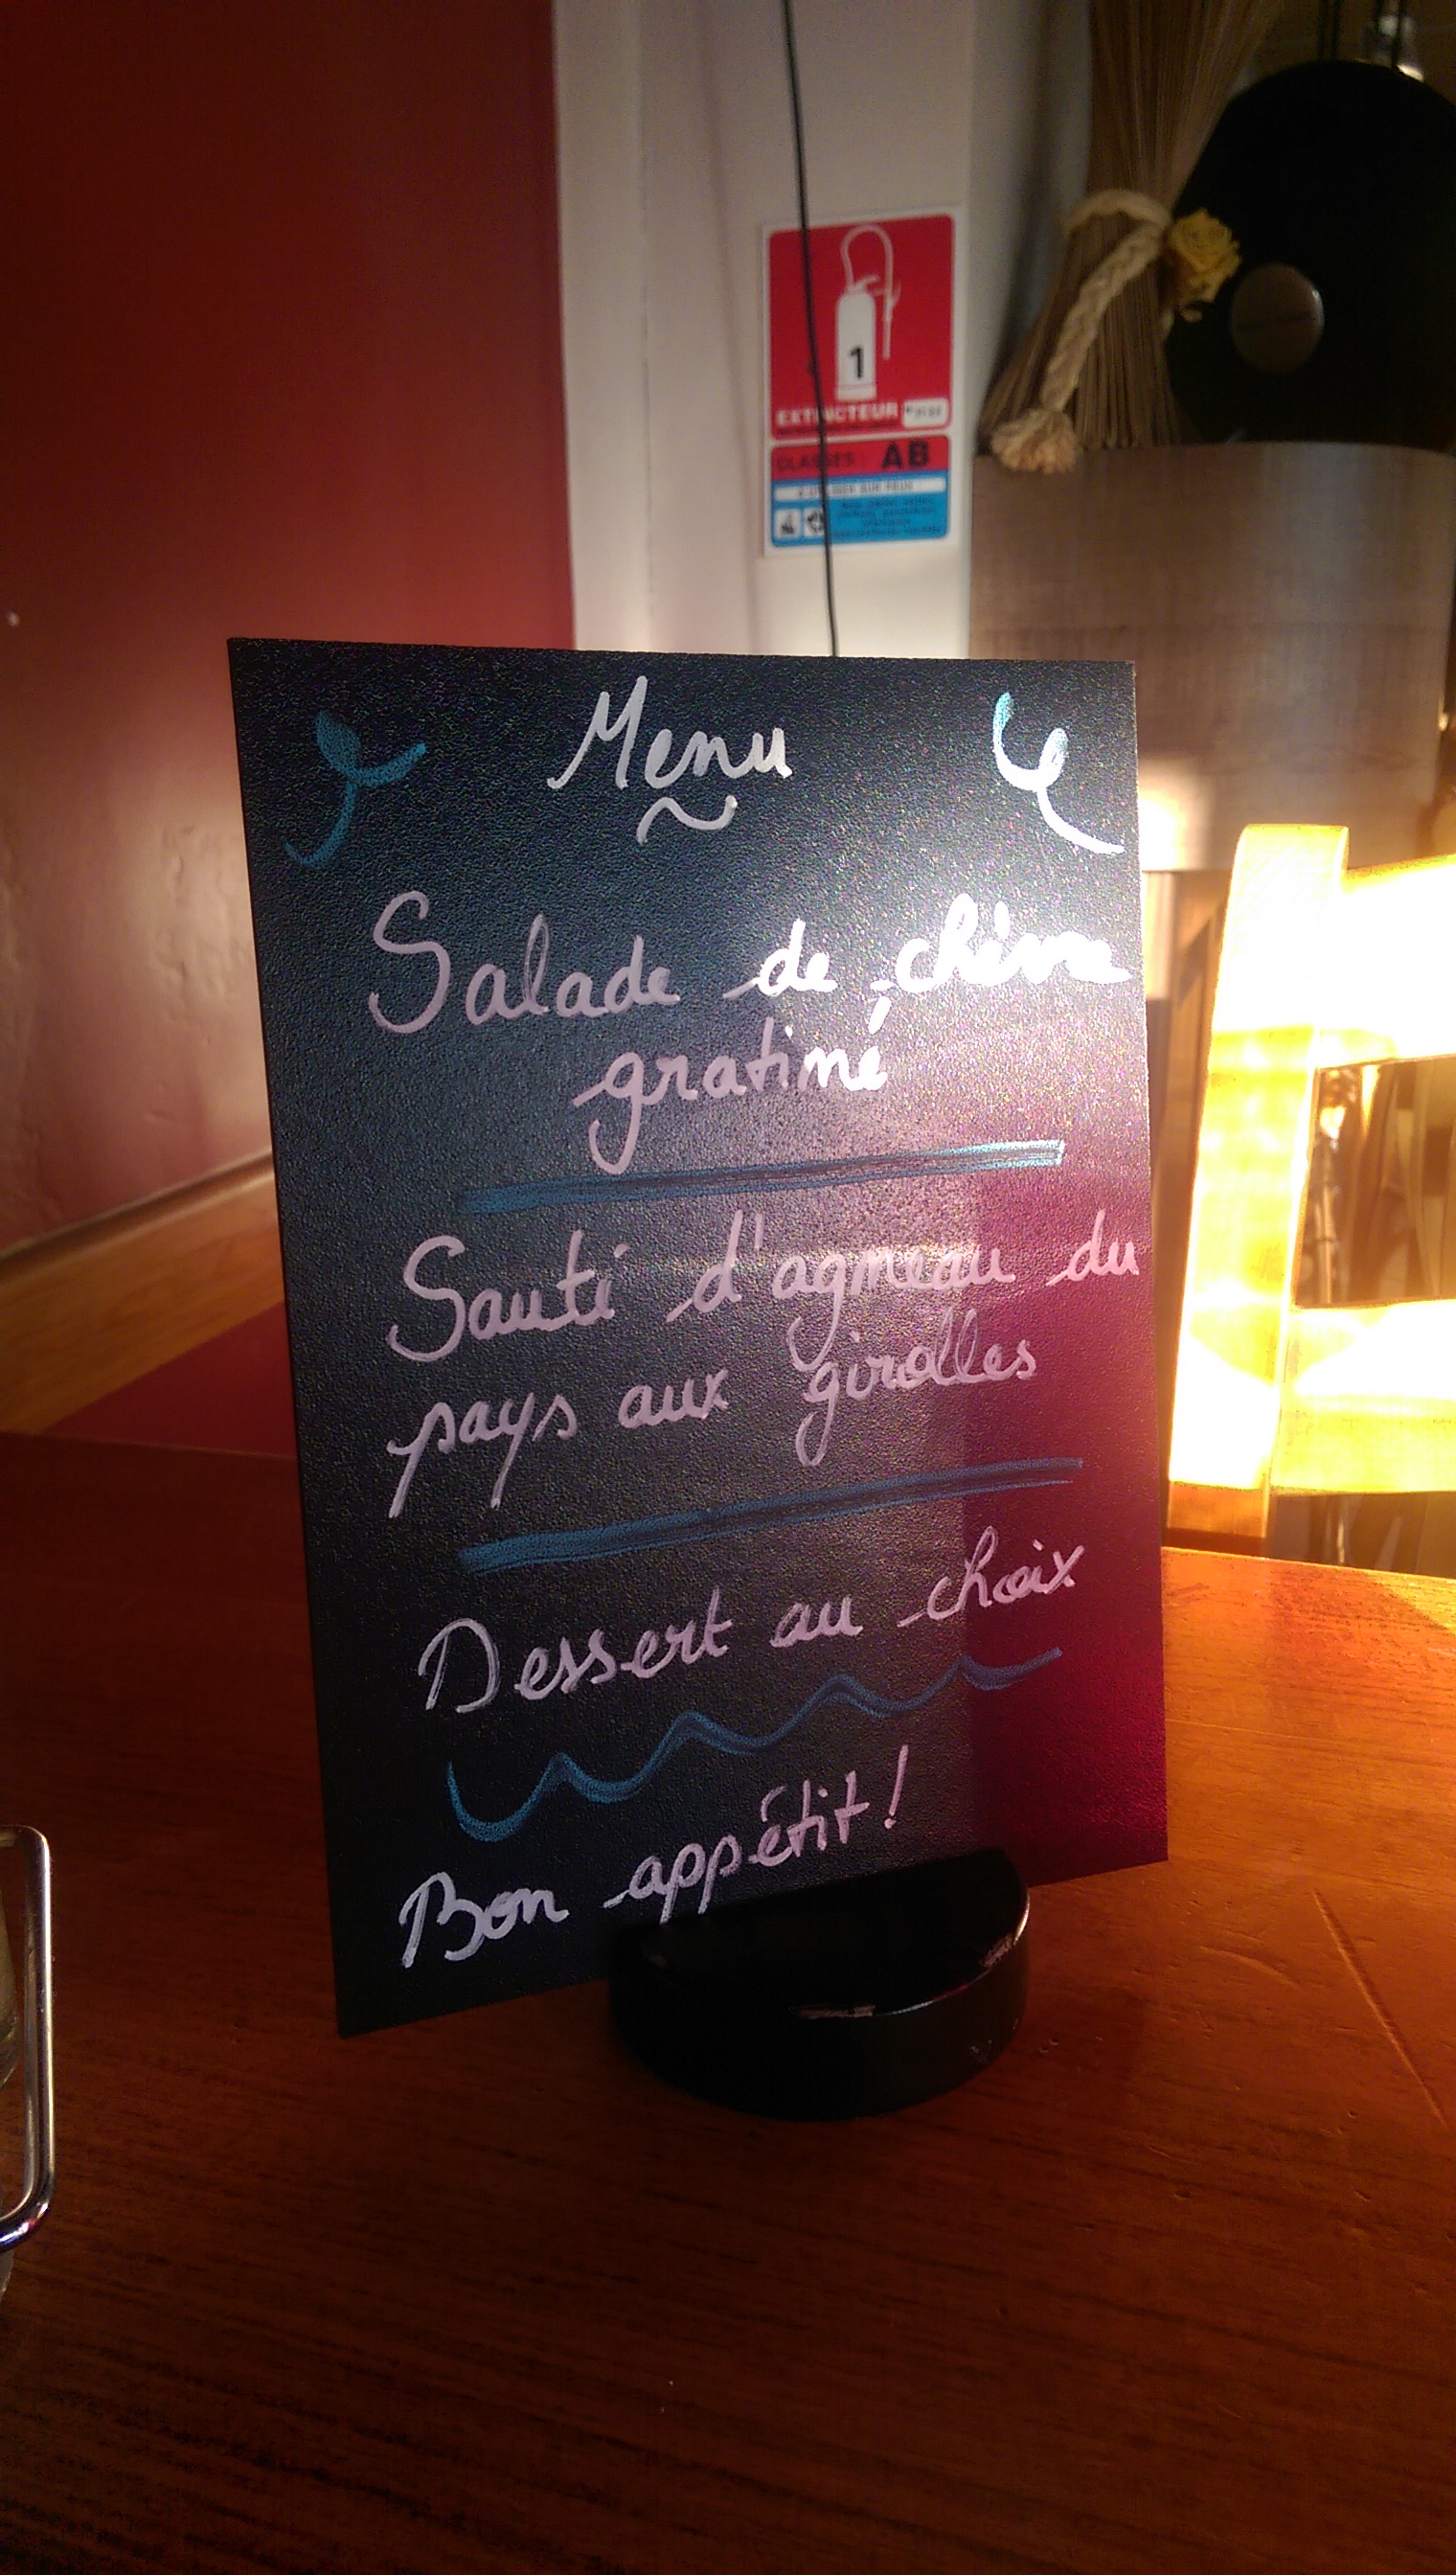 1
EXTINCTEUR
CLASSES: AB
Menu
Salade de chèvre
gratiné
Sauté d'agneau du
pays aux girolles
Dessert au choix
Bon appétit!